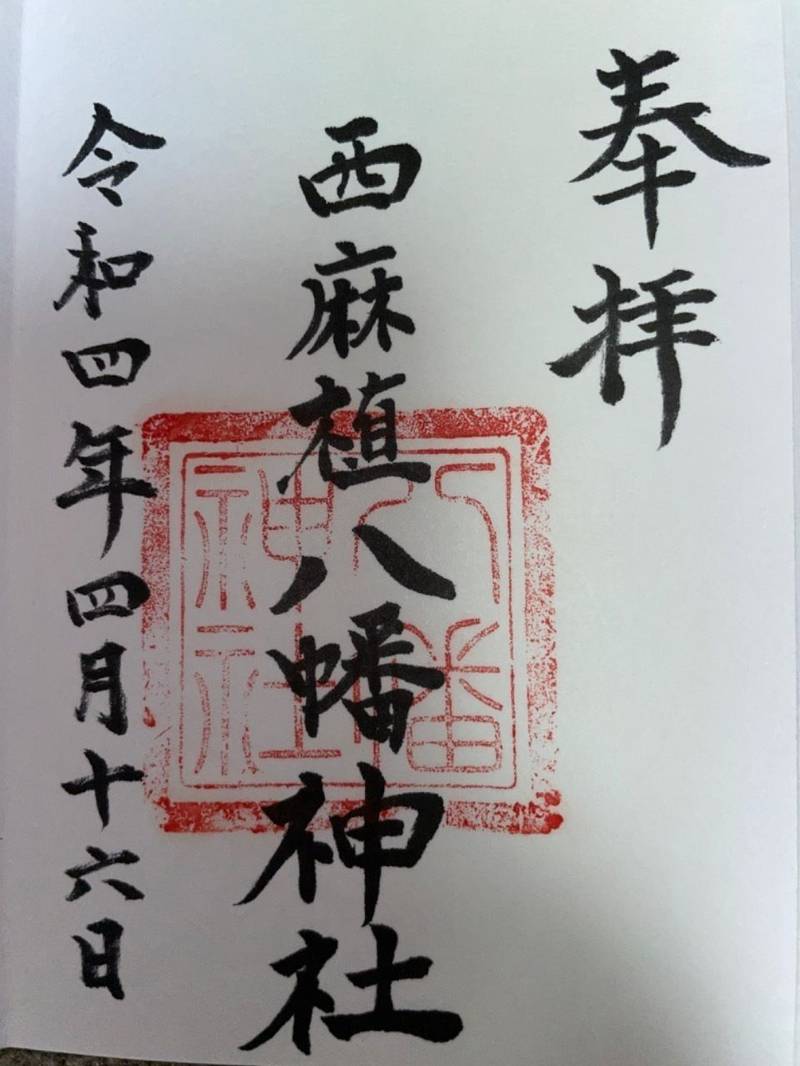 奉拝
西麻植八幡神社
令和四年四月十六日
八幡
神社